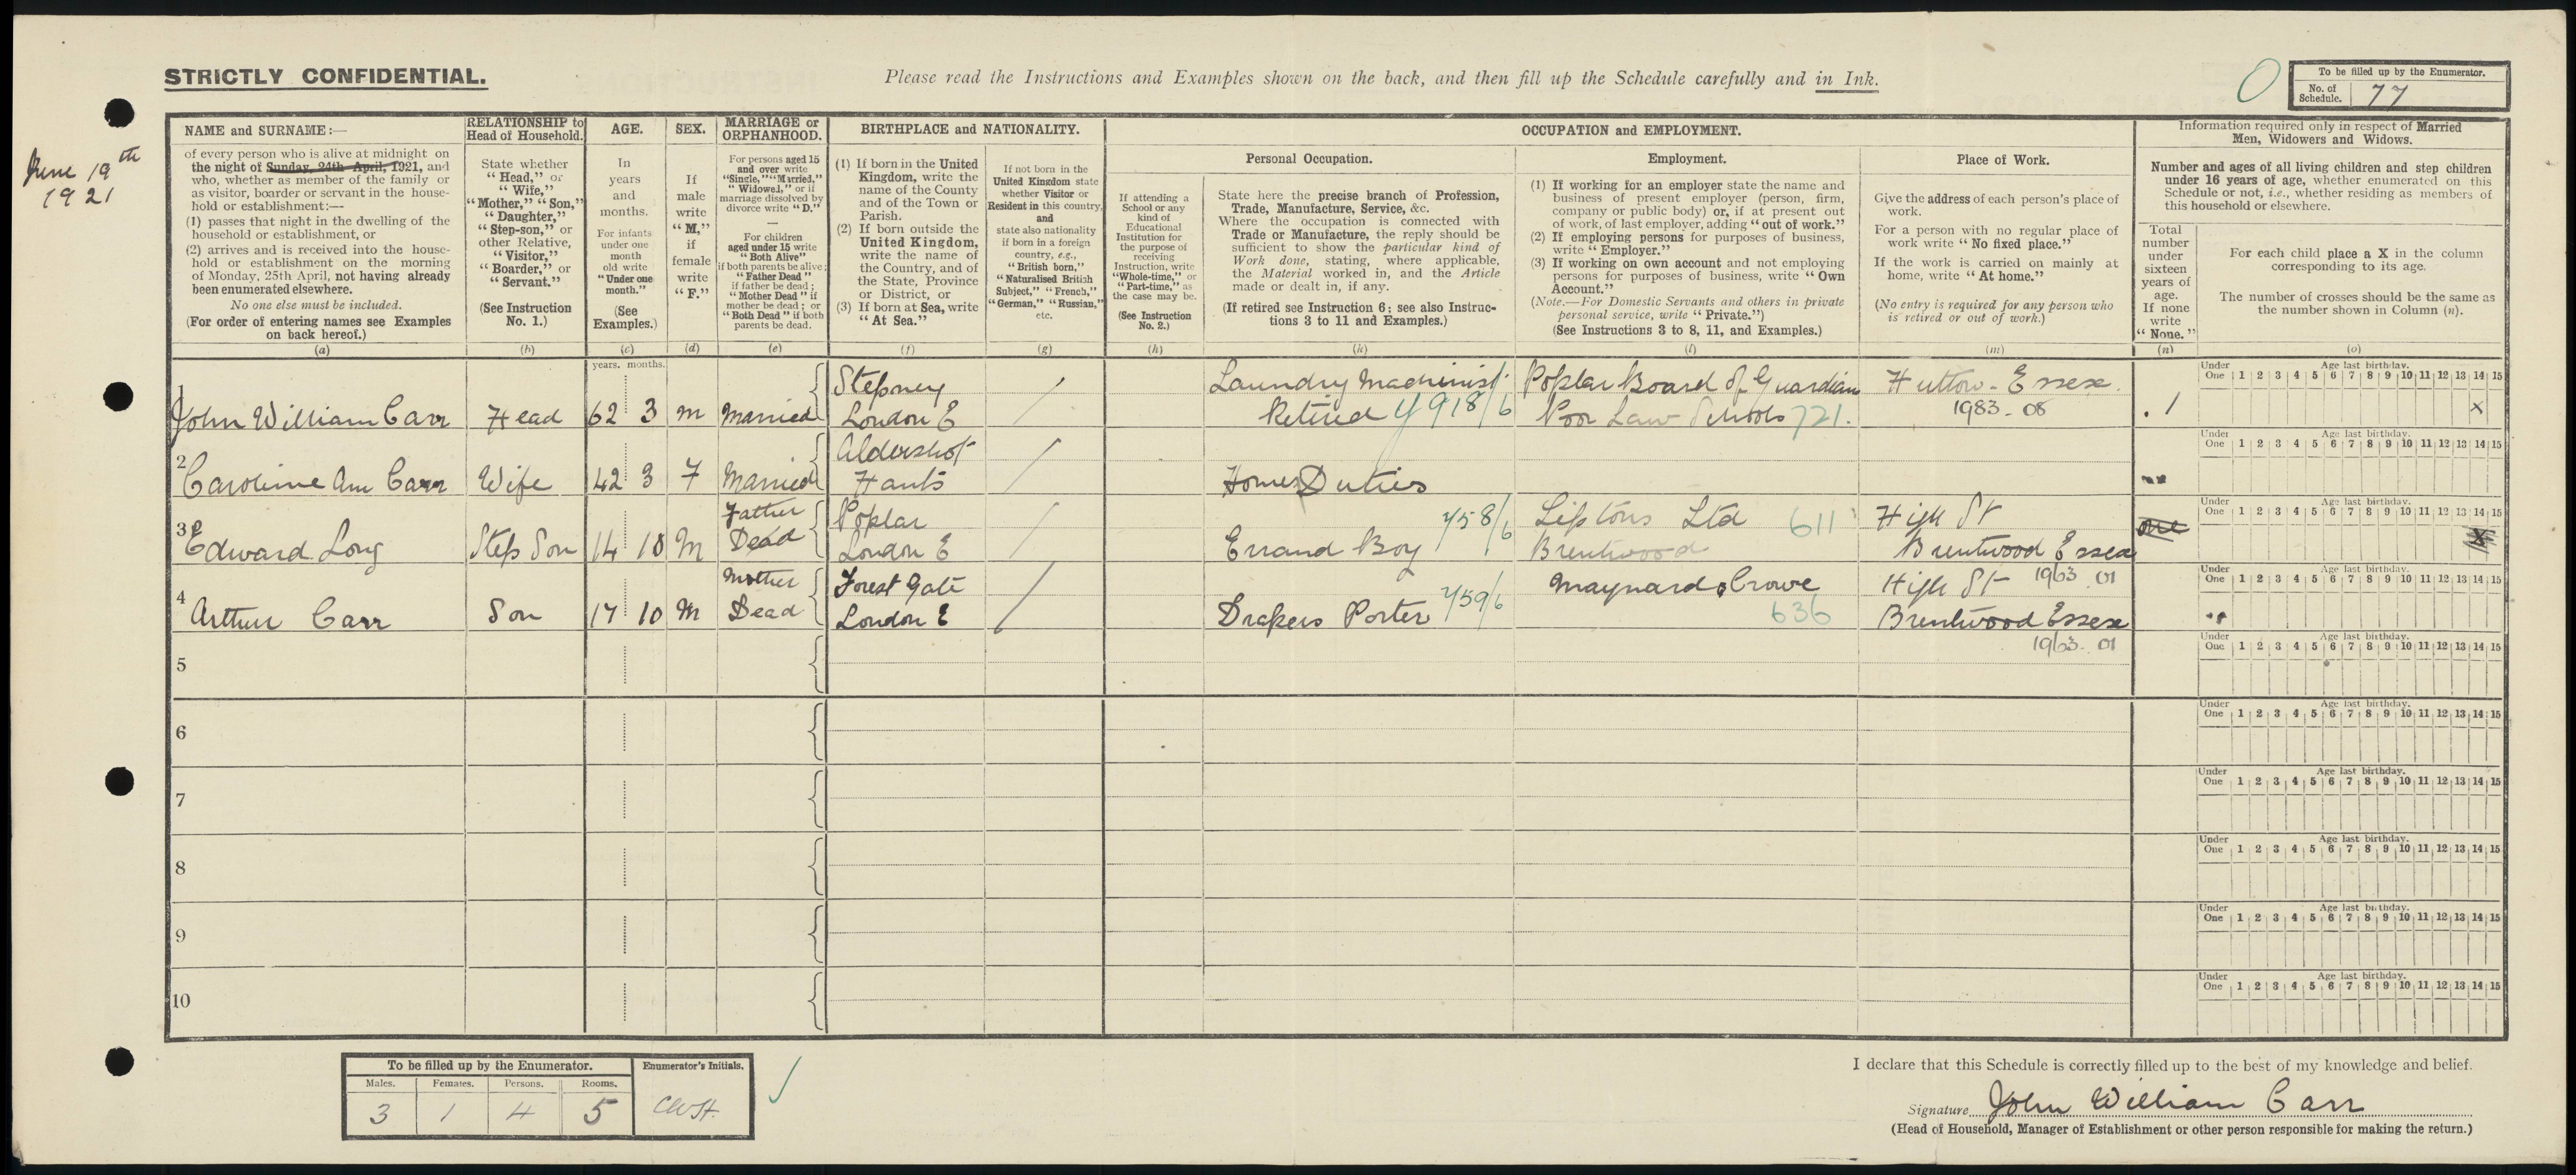 STRICTLY CONFIDENTIAL.
Please read the Instructions and Examples shown on the back, and then fill up the Schedule carefully and in Ink.
To be filled up by the Enumerator.
No. of Schedule. 77
June 19th
1921
NAME and SURNAME:—
of every person who is alive at midnight on
the night of Sunday, 24th April, 1921, and
who, whether as member of the family or
as visitor, boarder or servant in the house-
hold or establishment:—
(1) passes that night in the dwelling of the
household or establishment, or
(2) arrives and is received into the house-
hold or establishment on the morning
of Monday, 25th April, not having already
been enumerated elsewhere.
No one else must be included.
(For order of entering names see Examples
on back hereof.)
(a)
RELATIONSHIP to
Head of Household.
State whether
"Head," or
"Wife,"
"Mother," "Son,"
"Daughter,"
"Step-son," or
other Relative,
"Visitor,"
"Boarder," or
"Servant."
(See Instruction
No. 1.)
(b)
AGE.
In
years
and
months.
For infants
under one
month
old write
"Under one
month."
(See
Examples.)
(c)
years. months.
SEX.
If
male
write
"M,"
if
female
write
"F."
(d)
MARRIAGE or
ORPHANHOOD.
For persons aged 15
and over write
"Single," "Married,"
"Widowed," or if
marriage dissolved by
divorce write "D."
—
For children
aged under 15 write
"Both Alive"
if both parents be alive;
"Father Dead"
if father be dead;
"Mother Dead" if
mother be dead; or
"Both Dead" if both
parents be dead.
(e)
BIRTHPLACE and NATIONALITY.
(1) If born in the United
Kingdom, write the
name of the County
and of the Town or
Parish.
(2) If born outside the
United Kingdom,
write the name of
the Country, and of
the State, Province
or District, or
(3) If born at Sea, write
"At Sea."
(f)
If not born in the
United Kingdom state
whether Visitor or
Resident in this country,
and
state also nationality
if born in a foreign
country, e.g.,
"British born,"
"Naturalised British
Subject," "French,"
"German," "Russian,"
etc.
(g)
OCCUPATION and EMPLOYMENT.
If attending a
School or any
kind of
Educational
Institution for
the purpose of
receiving
Instruction, write
"Whole-time," or
"Part-time," as
the case may be.
(See Instruction
No. 2.)
(h)
Personal Occupation.
State here the precise branch of Profession,
Trade, Manufacture, Service, &c.
Where the occupation is connected with
Trade or Manufacture, the reply should be
sufficient to show the particular kind of
Work done, stating, where applicable,
the Material worked in, and the Article
made or dealt in, if any.
(If retired see Instruction 6; see also Instruc-
tions 3 to 11 and Examples.)
(k)
Employment.
(1) If working for an employer state the name and
business of present employer (person, firm,
company or public body) or, if at present out
of work, of last employer, adding "out of work."
(2) If employing persons for purposes of business,
write "Employer."
(3) If working on own account and not employing
persons for purposes of business, write "Own
Account."
(Note.—For Domestic Servants and others in private
personal service, write "Private.")
(See Instructions 3 to 8, 11, and Examples.)
(l)
Place of Work.
Give the address of each person's place of
work.
For a person with no regular place of
work write "No fixed place."
If the work is carried on mainly at
home, write "At home."
(No entry is required for any person who
is retired or out of work.)
(m)
Information required only in respect of Married
Men, Widowers and Widows.
Number and ages of all living children and step children
under 16 years of age, whether enumerated on this
Schedule or not, i.e., whether residing as members of
this household or elsewhere.
Total
number
under
sixteen
years of
age.
If none
write
"None."
(n)
For each child place a X in the column
corresponding to its age.
The number of crosses should be the same as
the number shown in Column (n).
(o)
Under One Age last birthday. 1 2 3 4 5 6 7 8 9 10 11 12 13 14 15
1 John William Carr Head 62 3 M Married Stepney London E Laundry Machinist Retired Y918/6 Poplar Board of Guardian Poor Law Schools 721. Hutton - Essex. 1983.08 1 X
Under One Age last birthday. 1 2 3 4 5 6 7 8 9 10 11 12 13 14 15
2 Caroline Ann Carr Wife 42 3 F Married Aldershot Hants Home Duties
Under One Age last birthday. 1 2 3 4 5 6 7 8 9 10 11 12 13 14 15
3 Edward Long Step Son 14 10 M Father Dead Poplar London E Errand Boy 758/6 Liptons Ltd Brentwood 611 High St Brentwood Essex 1963.01 one X
Under One Age last birthday. 1 2 3 4 5 6 7 8 9 10 11 12 13 14 15
4 Arthur Carr Son 17 10 M Mother Dead Forest Gate London E Drapers Porter 759/6 Maynard & Crowe 636 High St Brentwood Essex 1963.01
Under One Age last birthday. 1 2 3 4 5 6 7 8 9 10 11 12 13 14 15
5
Under One Age last birthday. 1 2 3 4 5 6 7 8 9 10 11 12 13 14 15
6
Under One Age last birthday. 1 2 3 4 5 6 7 8 9 10 11 12 13 14 15
7
Under One Age last birthday. 1 2 3 4 5 6 7 8 9 10 11 12 13 14 15
8
Under One Age last birthday. 1 2 3 4 5 6 7 8 9 10 11 12 13 14 15
9
Under One Age last birthday. 1 2 3 4 5 6 7 8 9 10 11 12 13 14 15
10
To be filled up by the Enumerator.
Males. Females. Persons. Rooms.
3 1 4 5
Enumerator's Initials.
CWH.
I declare that this Schedule is correctly filled up to the best of my knowledge and belief.
Signature John William Carr
(Head of Household, Manager of Establishment or other person responsible for making the return.)